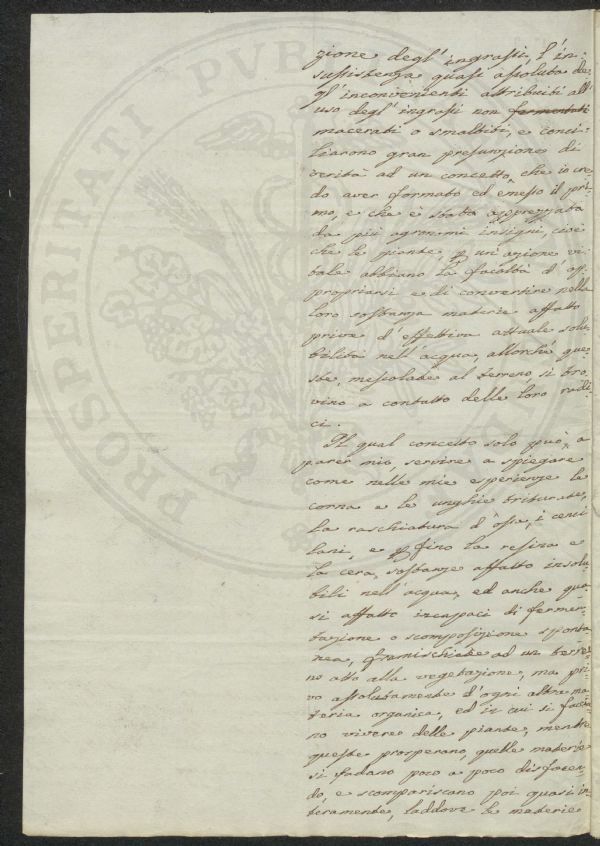 zione degl' ingrassi, l' in-
sussistenza quasi assoluta de
gl' inconvenienti attribuiti all'
uso degl' ingrassi non fermentati
macerati o smaltiti, e conci-
liarono gran presunzione di
verità ad un concetto, che io cre
do aver formato ed emesso il pri
mo, e che è stato apprezzato
da più agronomi insigni, cioè
che le piante, p un' azione vi
tale abbiano la facoltà d' ap
propriarsi e di convertire nella
loro sostanza materie affatto
prive d' effettiva attuale solu
bilità nell' acqua, allorchè que
ste, mescolate al terreno si tro
vino a contatto delle loro radi
ci.
Il qual concetto solo può, a
parer mio, servire a spiegare
come nelle mie esperienze le
corna e le unghie triturate,
la raschiatura d' ossa, i cenci
lani, e p fino la resina e
la cera, sostanze affatto insolu
bili nell' acqua, ed anche qua
si affatto incapaci di fermen-
tazione o scomposizione sponta
nea, framischiate ad un terre
no atto alla vegetazione, ma pri
vo assolutamente d' ogni altra ma
teria organica, ed in cui si faceva
no vivere delle piante, mentre
queste prosperano, quelle materie
si vadano poco a poco disfacen
do, e scompariscano poi quasi in
teramente, laddove le materie
PROSPERITATI PVBLI